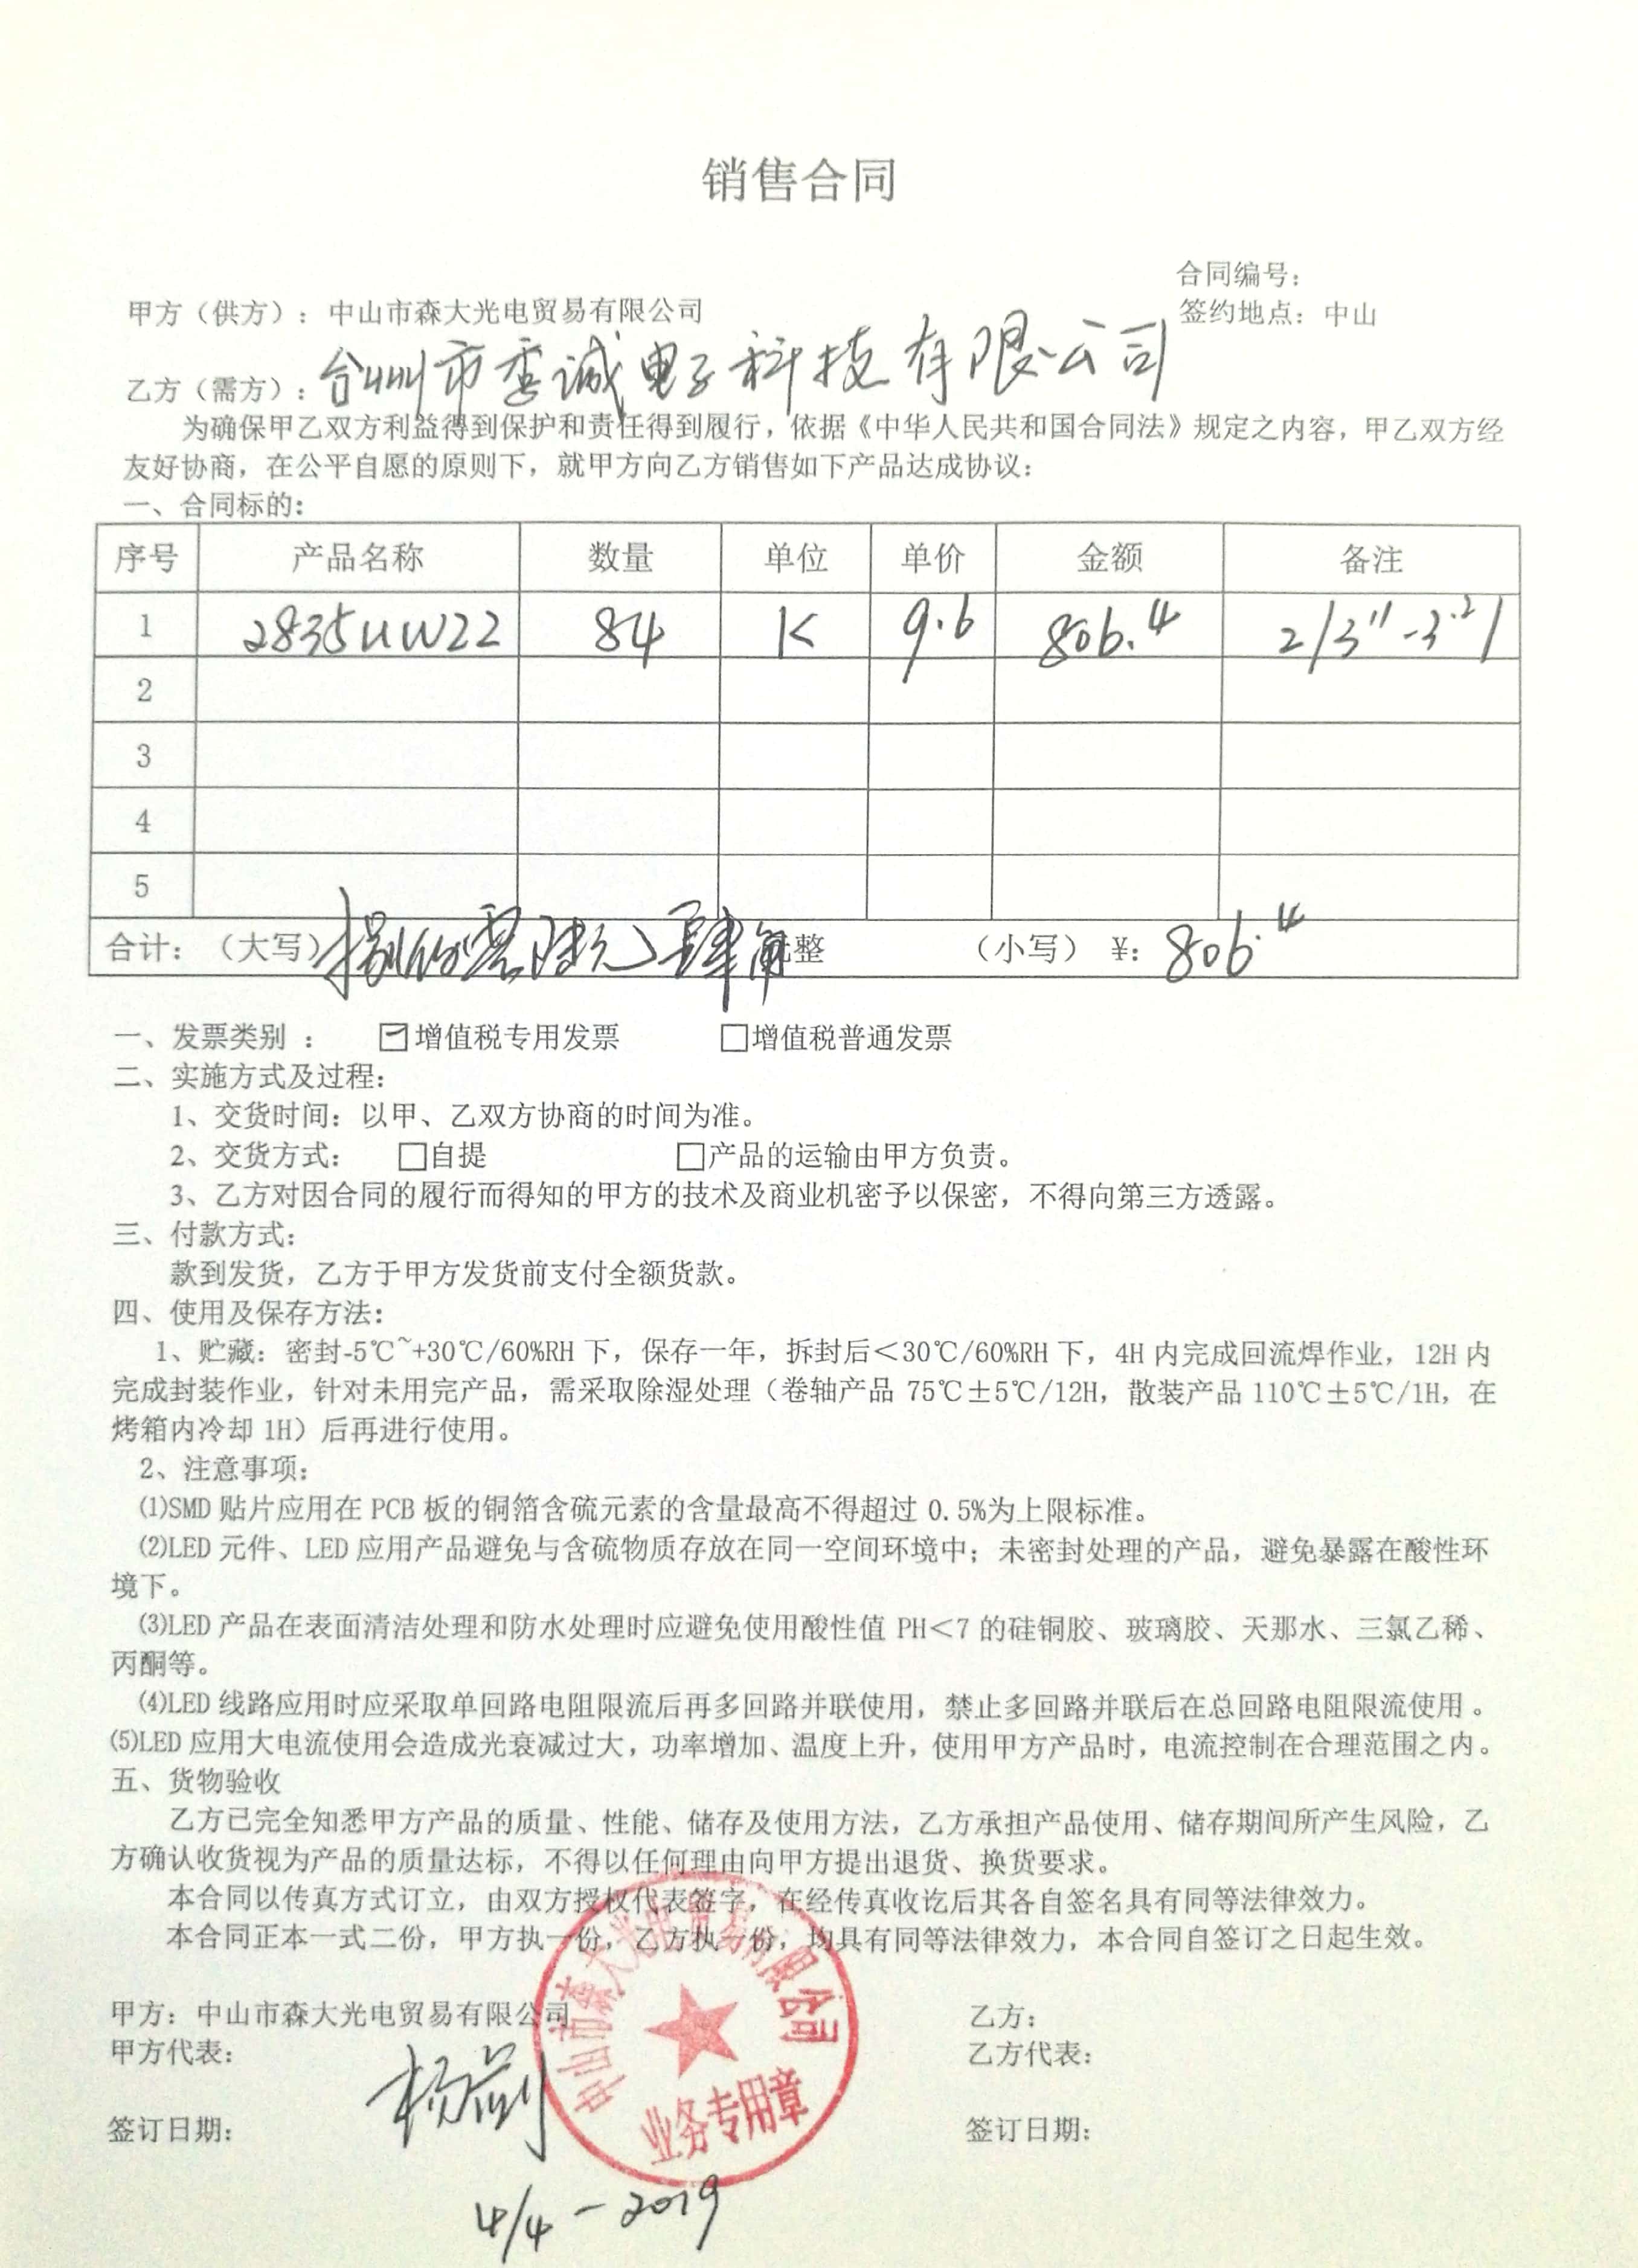 销售合同
合同编号：
甲方（供方）：中山市森大光电贸易有限公司
签约地点：中山
乙方（需方）：台州市委诚电子科技有限公司
为确保甲乙双方利益得到保护和责任得到履行，依据《中华人民共和国合同法》规定之内容，甲乙双方经
友好协商，在公平自愿的原则下，就甲方向乙方销售如下产品达成协议：
一、合同标的：
序号 产品名称 数量 单位 单价 金额 备注
1 2835UW22 84 K 9.6 806.4
2
3
4
5
合计：（大写）捌佰零陆元肆角 整 （小写）¥：806.4
一、发票类别 ： ☑增值税专用发票 □增值税普通发票
二、实施方式及过程：
1、交货时间：以甲、乙双方协商的时间为准。
2、交货方式： □自提 □产品的运输由甲方负责。
3、乙方对因合同的履行而得知的甲方的技术及商业机密予以保密，不得向第三方透露。
三、付款方式：
款到发货，乙方于甲方发货前支付全额货款。
四、使用及保存方法：
1、贮藏：密封-5℃~+30℃/60%RH 下，保存一年，拆封后＜30℃/60%RH 下，4H 内完成回流焊作业，12H 内
完成封装作业，针对未用完产品，需采取除湿处理（卷轴产品 75℃±5℃/12H，散装产品 110℃±5℃/1H，在
烤箱内冷却 1H）后再进行使用。
2、注意事项：
⑴SMD 贴片应用在 PCB 板的铜箔含硫元素的含量最高不得超过 0.5%为上限标准。
⑵LED 元件、LED 应用产品避免与含硫物质存放在同一空间环境中；未密封处理的产品，避免暴露在酸性环
境下。
⑶LED 产品在表面清洁处理和防水处理时应避免使用酸性值 PH＜7 的硅铜胶、玻璃胶、天那水、三氯乙稀、
丙酮等。
⑷LED 线路应用时应采取单回路电阻限流后再多回路并联使用，禁止多回路并联后在总回路电阻限流使用 。
⑸LED 应用大电流使用会造成光衰减过大，功率增加、温度上升，使用甲方产品时，电流控制在合理范围之内。
五、货物验收
乙方已完全知悉甲方产品的质量、性能、储存及使用方法，乙方承担产品使用、储存期间所产生风险，乙
方确认收货视为产品的质量达标，不得以任何理由向甲方提出退货、换货要求。
本合同以传真方式订立，由双方授权代表签字，在经传真收讫后其各自签名具有同等法律效力。
本合同正本一式二份，甲方执一份，乙方执一份，均具有同等法律效力，本合同自签订之日起生效。
甲方：中山市森大光电贸易有限公司 乙方：
甲方代表： 乙方代表：
签订日期： 签订日期：
中山市森大光电贸易有限公司
业务专用章
4/4-2019